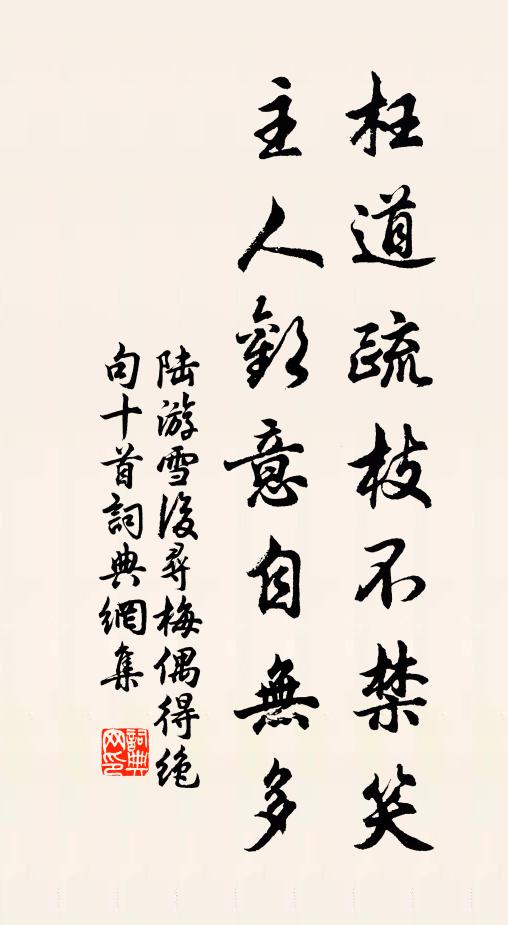 枉道疏枝不禁笑
主人歡意自無多
陆游雪後尋梅偶得絶
句十首詞典網集
詞典
网印